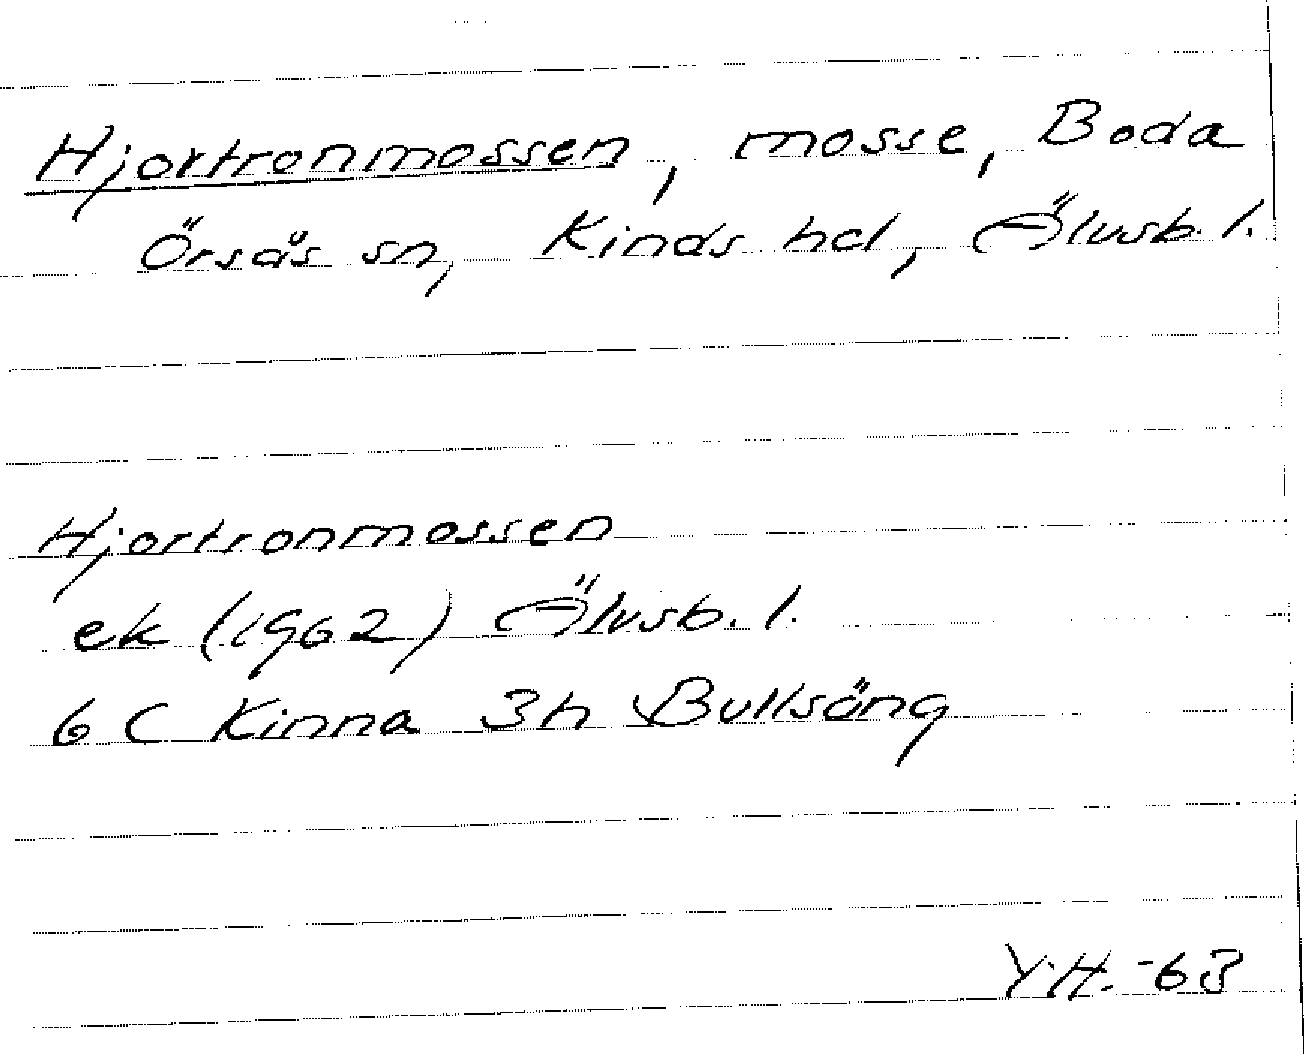 Hjortronmossen, mosse, Boda
Örsås sn, Kinds hd, Älvsb. l.
Hjortronmossen
ek (1962) Älvsb. l.
6 C Kinna 3h Bullsäng
Y.H. -63